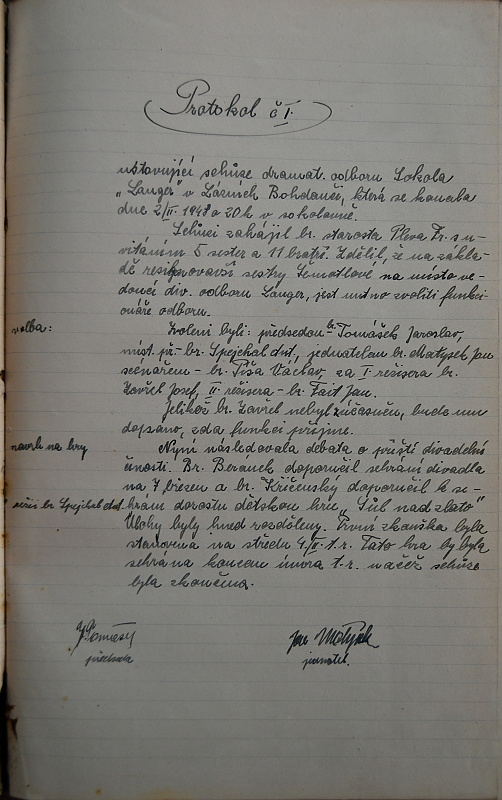 Protokol č I.
ustavující schůze dramat. odboru Sokola
"Langer" v Lázních Bohdanči, která se konala
dne 2/II. 1948 o 20 h v sokolovně.
Schůzi zahájil br. starosta Pleva Fr. s u-
vítáním 5 sester a 11 bratří. Sdělil, že na zákla-
dě resignovavší sestry Šemotlové na místo ve-
doucí div. odboru Langer, jest nutno zvoliti funkci-
onáře odboru.
volba:
Zvoleni byli: předsedou br. Tomášek Jaroslav,
míst. př. - br. Spejchal Ant., jednatelem br. Matysek Jan
scénářem - br. Písa Václav, za I. režisera br.
Zavřel Josef, II. režisera - br. Fait Jan.
Jelikož br. Zavřel nebyl zúčasněn, bude mu
dopsáno, zda funkci přijme.
návrh na hry
Nyní následovala debata o příští divadelní
činosti. Br. Beránek doporučil sehrání divadla
na 7. březen a br. Křičenský doporučil k se-
režis. br. Spejchal Ant.
hrání dorostu dětskou hru "Sůl nad zlato"
Úlohy byly hned rozděleny. První zkouška byla
stanovena na středu 4./II. t. r. Tato hra by byla
sehrána koncem února t. r. načež schůze
byla skončena.
J. Tomášek
předseda
Jan Matysek
jednatel.